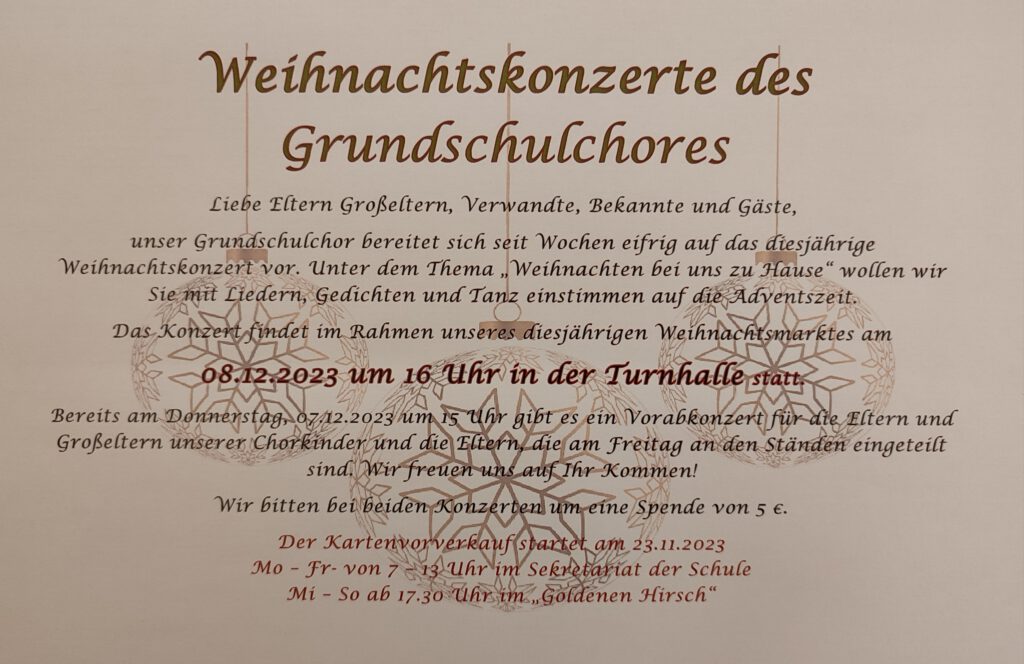 Weihnachtskonzerte des
Grundschulchores
Liebe Eltern Großeltern, Verwandte, Bekannte und Gäste,
unser Grundschulchor bereitet sich seit Wochen eifrig auf das diesjährige
Weihnachtskonzert vor. Unter dem Thema „Weihnachten bei uns zu Hause“ wollen wir
Sie mit Liedern, Gedichten und Tanz einstimmen auf die Adventszeit.
Das Konzert findet im Rahmen unseres diesjährigen Weihnachtsmarktes am
08.12.2023 um 16 Uhr in der Turnhalle statt.
Bereits am Donnerstag, 07.12.2023 um 15 Uhr gibt es ein Vorabkonzert für die Eltern und
Großeltern unserer Chorkinder und die Eltern, die am Freitag an den Ständen eingeteilt
sind. Wir freuen uns auf Ihr Kommen!
Wir bitten bei beiden Konzerten um eine Spende von 5 €.
Der Kartenvorverkauf startet am 23.11.2023
Mo – Fr- von 7 – 13 Uhr im Sekretariat der Schule
Mi – So ab 17.30 Uhr im „Goldenen Hirsch“